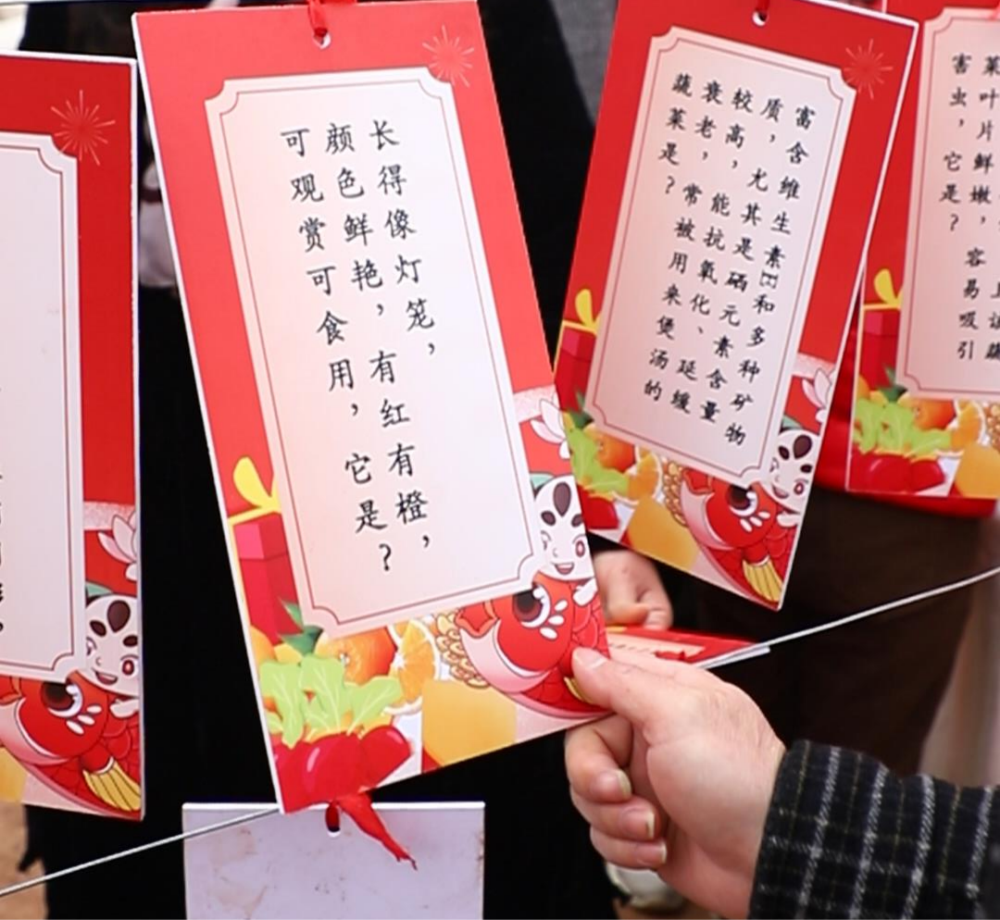 长得像灯笼，
颜色鲜艳，有红有橙，
可观赏可食用，它是？
富含维生素E和多种矿物
质，尤其是硒元素含量
较高，能抗氧化、延缓
衰老，常被用来煲汤的
蔬菜是？
菜叶片鲜嫩，容易吸引
害虫，它是？